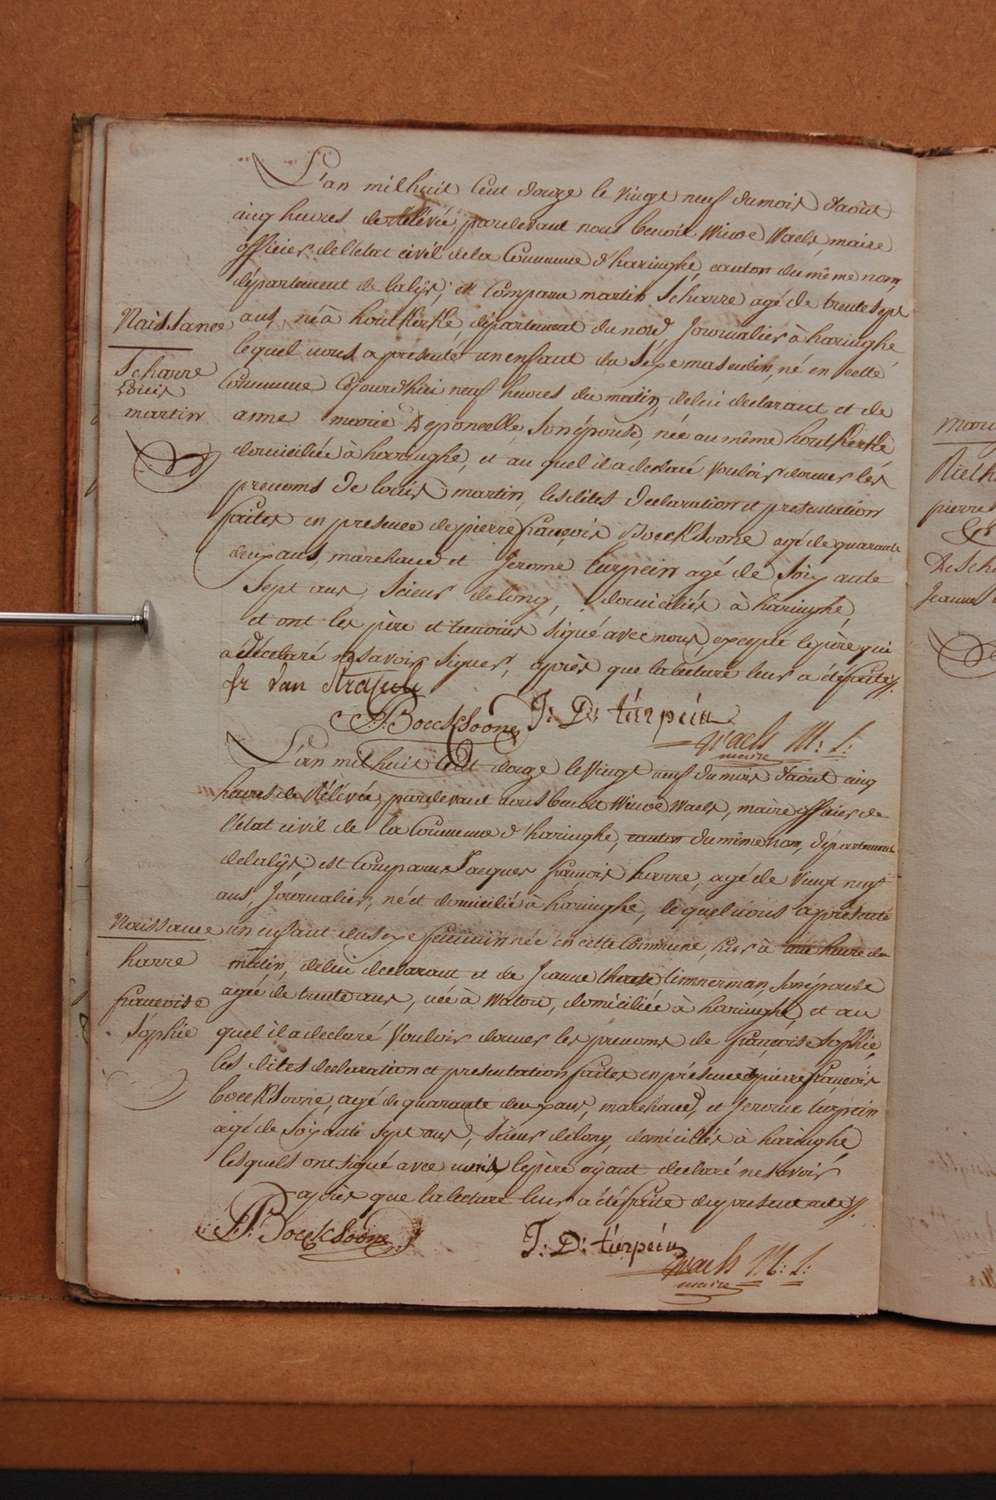 L'an mil huit Cent douze le vingt neuf du mois d'août
cinq heures de Rélévée, pardevant nous benoit Winoc Waels, maire
officier de l'état civil de la Commune d'haringhe, canton du même nom
département de la lijs, est Comparu martin Scharre agé de trente sept
ans, né à houtkerke département du nord Journalier à haringhe
lequel nous a presenté un enfant du séxe masculin, né en cette
Naissance
Scharre
Louis
martin
Commune Cejourdhui neuf heures du matin, de lui declarant et de
anne marie Deponcelle, son épouse, née au même houtkerke
domiciliée à haringhe, et au quel il a declaré vouloir donner les
prenoms de louis martin, les dites declaration et presentation
faites en presence de pierre françois Boecksoone agé de quarante
deux ans, marchand et Jerome turpein agé de soixante
sept ans, Scieur delong, domiciliés à haringhe,
et ont les père et temoins signé avec nous, excepté le père qui
a déclaré ne savoir signer, après que la lecture leur a été faite
fr Van
P.F. Boecksoone J: D: turpein
Waels M: f:
maire
L'an mil huit Cent douze le vingt neuf du mois d'aout cinq
heures de Rélévée, pardevant nous benoit Winoc Waels, maire officier de
l'état civil de la Commune d'haringhe, canton du même nom, département
de la lijs, est Comparu Jacques françois harre, agé de vingt neuf
ans, Journalier, né et domicilié à haringhe, lequel nous a presenté
Naissance
harre
françoise
Sophie
un enfant du sexe féminin née en cette Commune, hier à une heure du
matin, de lui declarant et de Jeanne therese timmerman, son épouse
agée de trente ans, née à Watou, domiciliée à haringhe, et au
quel il a declaré vouloir donner les prenoms de françoise Sophie,
les dites declaration et presentation faites en présence de pierre françois
boecksoone, agé de quarante deux ans, marchand, et Jerome turpein
agé de soixante sept ans, Scieur delong, domiciliés à haringhe
lesquels ont signé avec nous, le père ayant declaré ne savoir
après que la lecture leur a été faite du present acte
P.F. Boecksoone J: D: turpein
Waels M: f:
maire